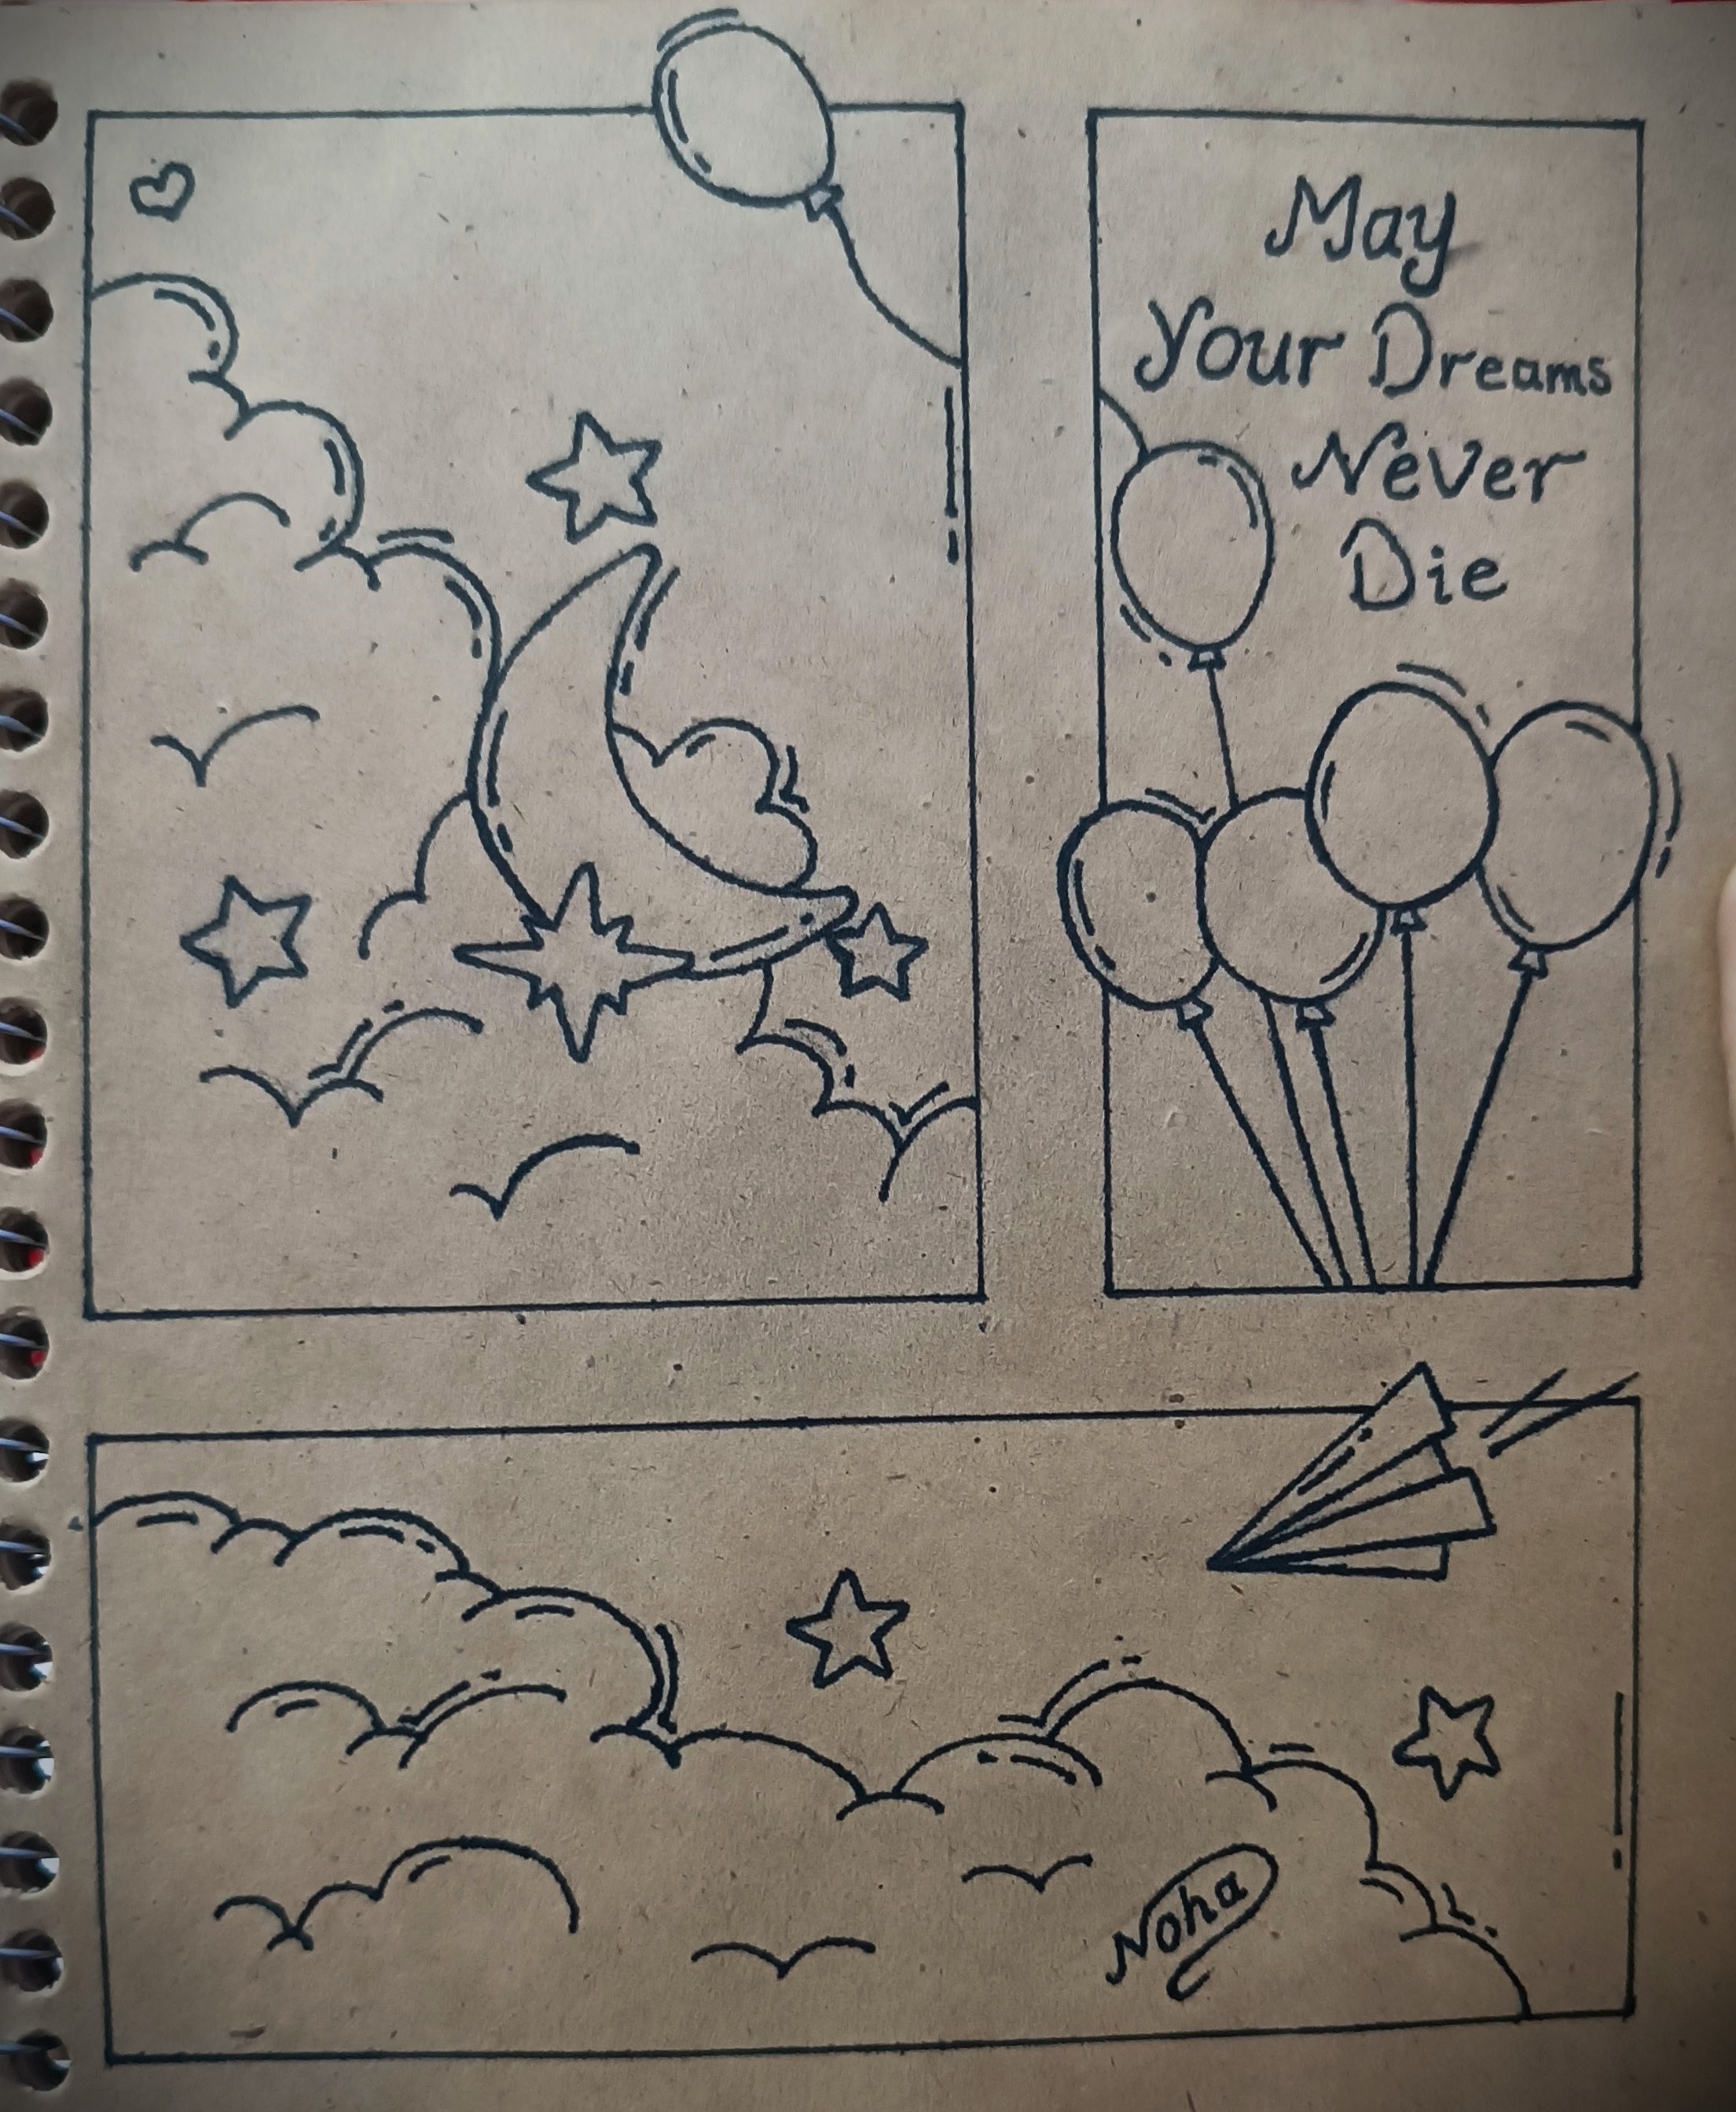 May
Your Dreams
Never
Die
Noha